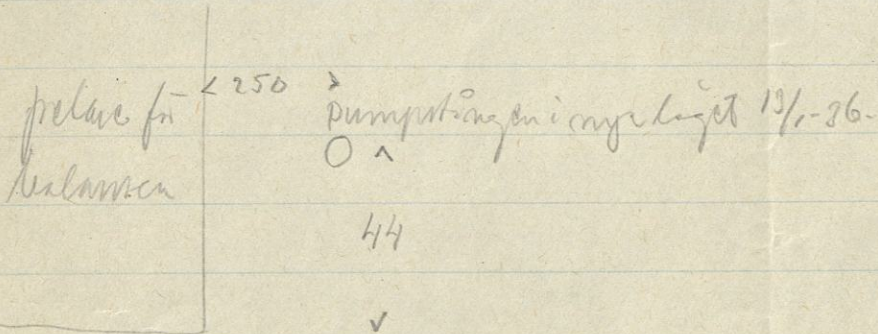 pelare för
balansen
< 250 >
pumpstången i nya läget 19/1-36.
44